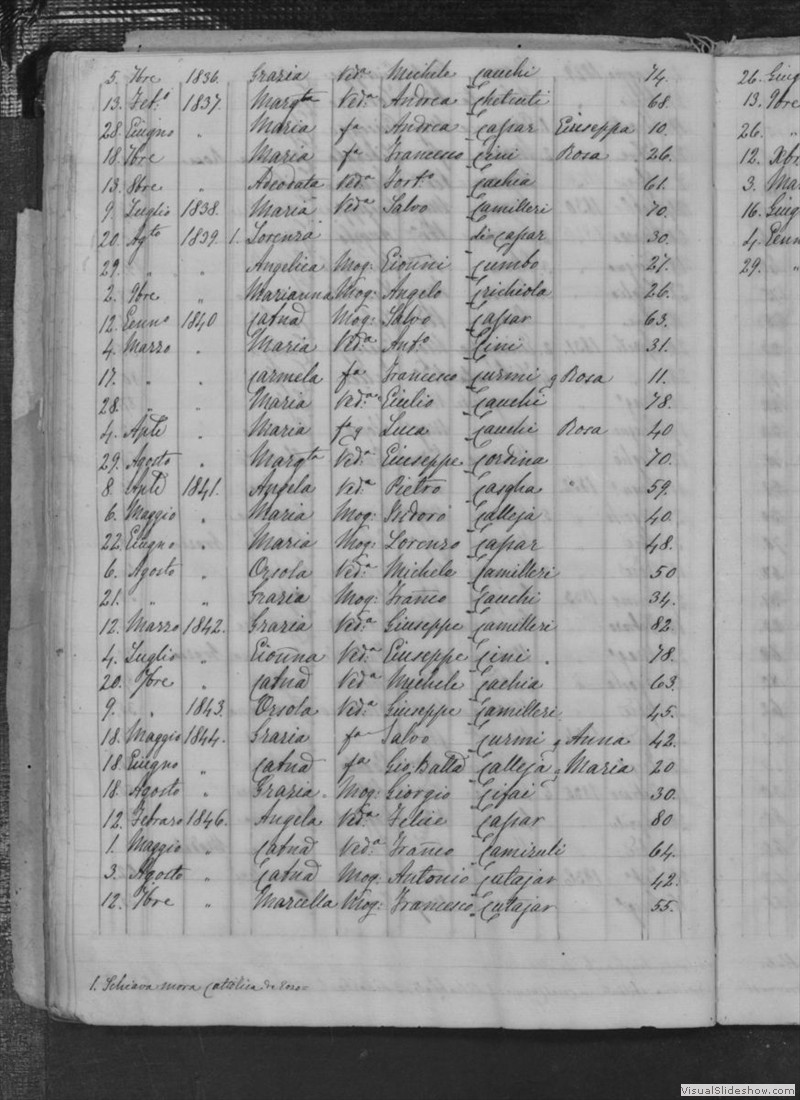 5. 7bre 1836. Grazia Ved.a Michele Cauchi 74. 26. Giug
13. Feb.o 1837. Marg.ta Ved.a Andrea 68. 13. 9bre
28. Giugno " Maria fa Andrea Caspar Giuseppa 10. 26. "
18. 7bre " Maria fa Francesco Cini Rosa 26. 12. Xbr
13. 8bre " Adeodata Ved.a Fort.o Cachia 61. 3. Mar
9. Luglio 1838. Maria Ved.a Salvo Camilleri 70. 16. Giug
20. Ag.to 1839. 1. Lorenza di Caspar 30. 4. Genn
29. " " Angelica Mog: Gionni Cumbo 27. 29. "
2. 9bre " Marianna Mog: Angelo Crichiola 26.
12. Genn.o 1840 Catna Mog: Salvo Caspar 63.
4. Marzo " Maria Ved.a Ant.o Cini 31.
17. " " Carmela fa Francesco Curmi q Rosa 11.
28. " " Maria Ved.a Giulio Cauchi 78.
4. Aple " Maria fa q Luca Cauchi Rosa 40
29. Agosto " Marg.ta Ved.a Giuseppe Cordina 70.
8. Aple 1841. Angela Ved.a Pietro Casgha 59.
6. Maggio " Maria Mog: Isidoro Calleja 40.
22. Giugno " Maria Mog: Lorenzo Caspar 48.
6. Agosto " Orsola Ved.a Michele Camilleri 50
21. " " Grazia Mog: Franco Cauchi 34.
12. Marzo 1842. Grazia Ved.a Giuseppe Camilleri 82.
4. Luglio " Gionna Ved.a Giuseppe Cini. 78.
20. 7bre " Catna Ved.a Michele Cachia 63.
9. " 1843. Orsola Ved.a Giuseppe Camilleri 45.
18. Maggio 1844. Grazia fa Salvo Curmi q Anna 42.
18. Giugno " Catna fa Gio Batta Calleja q Maria 20
18. Agosto " Grazia Mog: Giorgio Cifai 30.
12. Febraro 1846. Angela Ved.a Felice Caspar 80
1. Maggio " Catna Ved.a Franco 64.
3. Agosto " Catna Mog: Antonio Cutajar 42.
12. 7bre " Marcella Mog: Francesco Cutajar 55.
1. Schiava mora Catolica da
VisualSlideshow.com